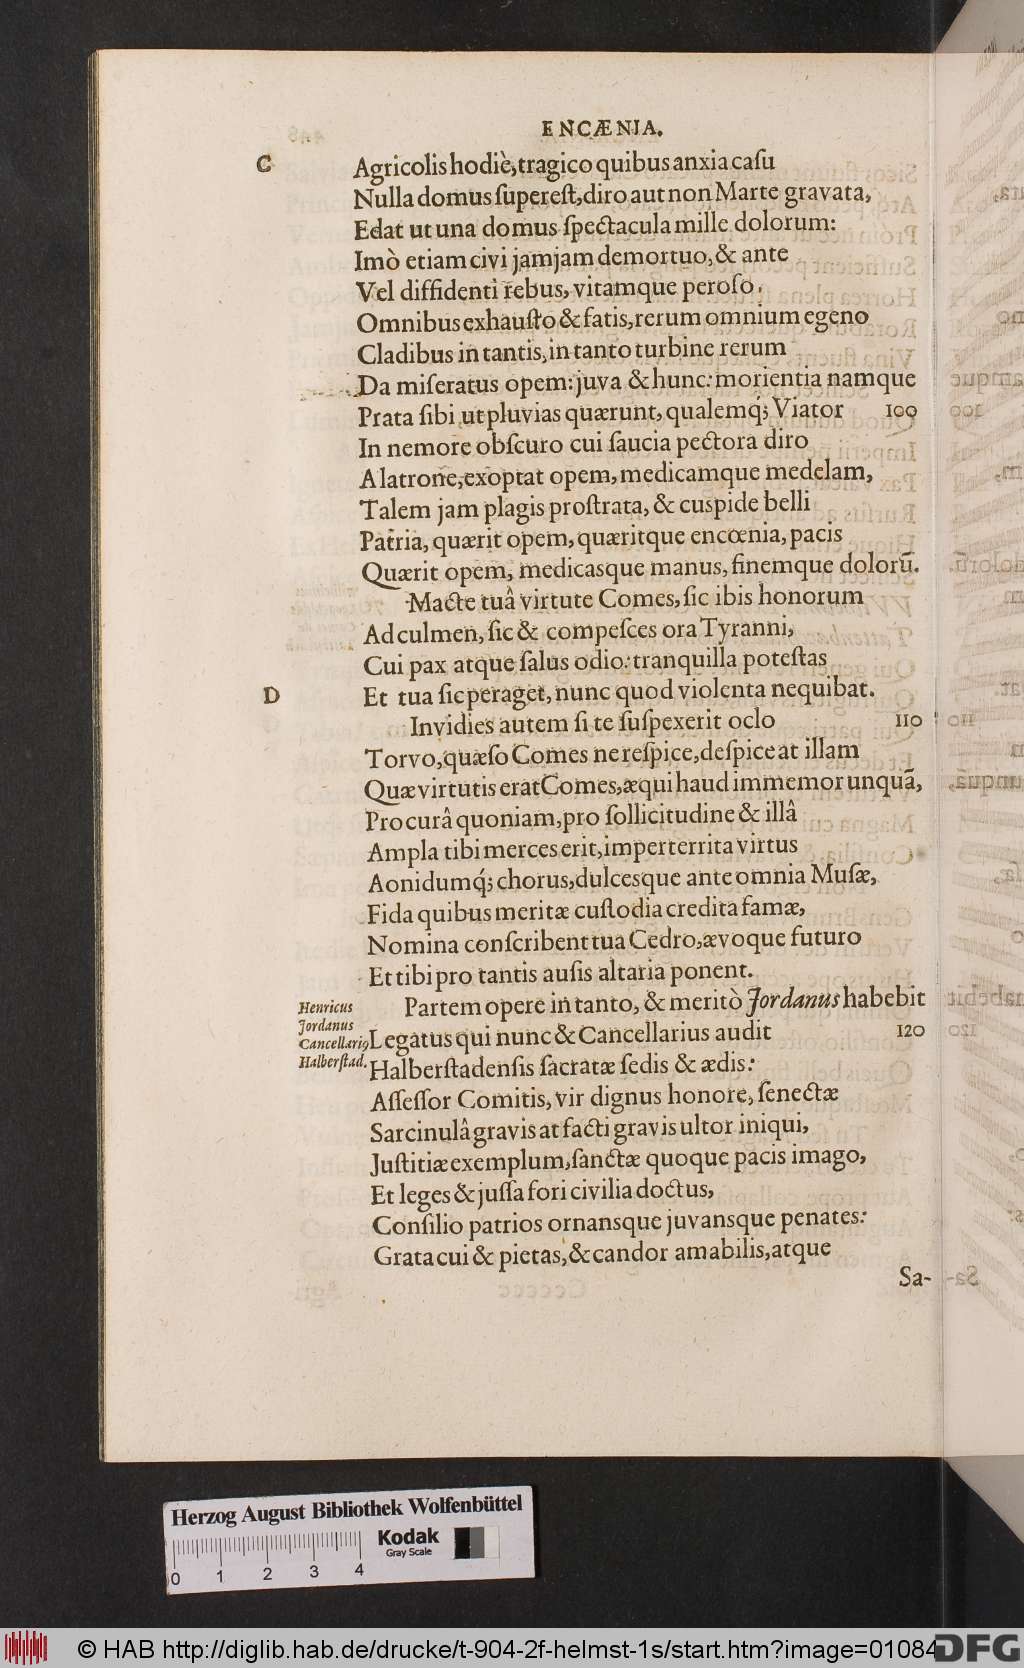 ENCÆNIA.
C
Agricolis hodiè, tragico quibus anxia caſu
Nulla domus ſupereſt, diro aut non Marte gravata,
Edat ut una domus ſpectacula mille dolorum:
Imò etiam civi jamjam demortuo, & ante
Vel diffidenti rebus, vitamque peroſo.
Omnibus exhauſto & fatis, rerum omnium egeno
Cladibus in tantis, in tanto turbine rerum
Da miſeratus opem: juva & hunc: morientia namque
Prata ſibi ut pluvias quærunt, qualemq́; Viator 100
In nemore obſcuro cui ſaucia pectora diro
A latrone, exoptat opem, medicamque medelam,
Talem jam plagis proſtrata, & cuspide belli
Patria, quærit opem, quæritque encœnia, pacis
Quærit opem, medicasque manus, finemque dolorũ.
Macte tuâ virtute Comes, ſic ibis honorum
Ad culmen, ſic & compeſces ora Tyranni,
Cui pax atque ſalus odio: tranquilla poteſtas
D
Et tua ſic peraget, nunc quod violenta nequibat.
Invidies autem ſi te ſuſpexerit oclo 110
Torvo, quæſo Comes ne reſpice, deſpice at illam
Quæ virtutis erat Comes, æqui haud immemor unquã,
Pro curâ quoniam, pro ſollicitudine & illâ
Ampla tibi merces erit, imperterrita virtus
Aonidumq́; chorus, dulcesque ante omnia Muſæ,
Fida quibus meritæ cuſtodia credita famæ,
Nomina conſcribent tua Cedro, ævoque futuro
Et tibi pro tantis auſis altaria ponent.
Henricus
Jordanus
Cancellariꝰ
Halberſtad.
Partem opere in tanto, & meritò Jordanus habebit
Legatus qui nunc & Cancellarius audit 120
Halberſtadenſis ſacratæ ſedis & ædis:
Aſſeſſor Comitis, vir dignus honore, ſenectæ
Sarcinulâ gravis at facti gravis ultor iniqui,
Juſtitiæ exemplum, ſanctæ quoque pacis imago,
Et leges & juſſa fori civilia doctus,
Conſilio patrios ornansque juvansque penates:
Grata cui & pietas, & candor amabilis, atque
Sa-
Herzog August Bibliothek Wolfenbüttel
Kodak
Gray Scale
0 1 2 3 4
© HAB http://diglib.hab.de/drucke/t-904-2f-helmst-1s/start.htm?image=01084
DFG